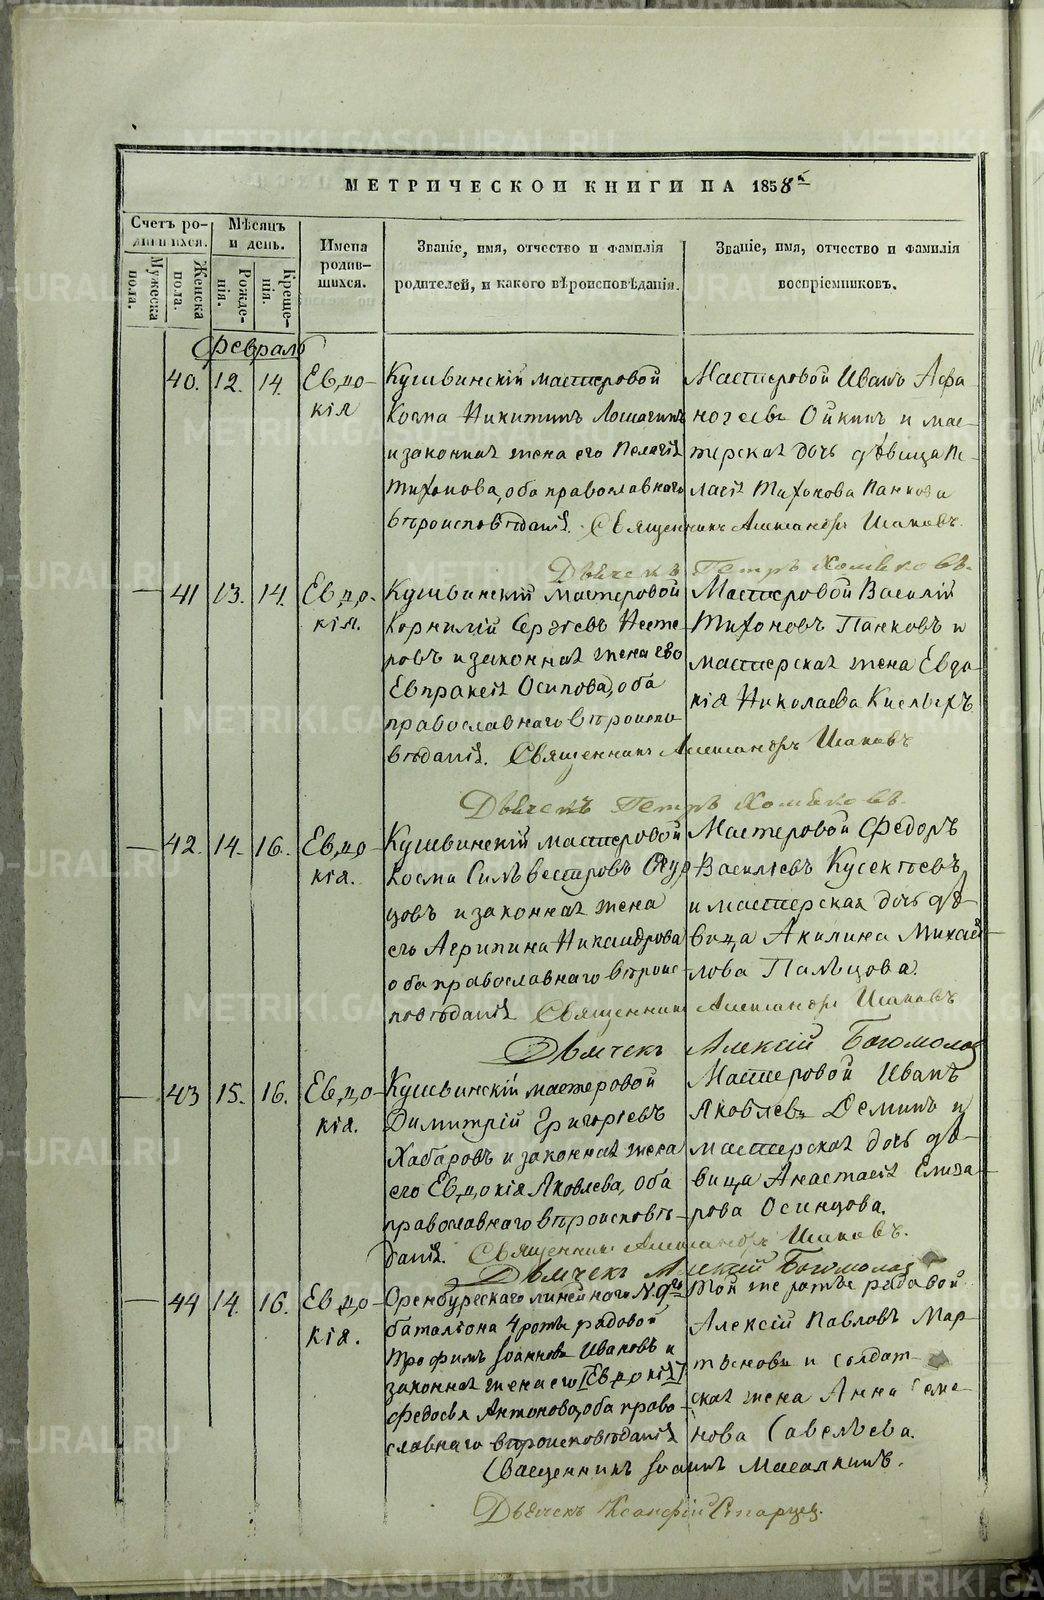 МЕТРИЧЕСКОЙ КНИГИ НА 1858й
Счетъ родившихся.
Мѣсяцъ и день.
Имена родившихся.
Званіе, имя, отчество и фамилія
родителей, и какого вѣроисповѣданія.
Званіе, имя, отчество и фамилія
воспріемниковъ.
Мужеска пола.
Женска пола.
Рожденія.
Крещенія.
Февраль
40. 12. 14. Евдокія
Кушвинскій мастеровой
Косма Никитинъ Ломагинъ
и законная жена его Пелагія
Тихонова, оба православнаго
вѣроисповѣданія.
Мастеровой Иванъ Афа-
ногеевъ Ойкинъ и мас-
терская дочь дѣвица Пе-
лагія Тихонова Панкова
Священникъ Александръ
Дьячекъ Петръ Хомяковъ.
41 13. 14. Евдокія.
Кушвинскій мастеровой
Корнилій Сергѣевъ Несте-
ровъ и законная жена его
Евпраксія Осипова, оба
православнаго вѣроиспо-
вѣданія.
Мастеровой Василій
Тихоновъ Панковъ и
мастерская жена Евдо-
кія Николаева
Священникъ Александръ
Дьячекъ Петръ Хомяковъ.
42. 14. 16. Евдокія.
Кушвинскій мастеровой
Косма Сильвестровъ Огур-
цовъ и законная жена
его Агрипина Никандрова
оба православнаго вѣроис-
повѣданія
Мастеровой Федоръ
Васильевъ
и мастерская дочь дѣ-
вица Акилина Михай-
лова Пальцова.
Священникъ Александръ
Дьячекъ Алексій Богомолов
43 15. 16. Евдокія.
Кушвинскій мастеровой
Димитрій Григорьевъ
Хабаровъ и законная жена
его Евдокія Яковлева, оба
православнаго вѣроисповѣ-
данія.
Мастеровой Иванъ
Яковлевъ Деминъ и
мастерская дочь дѣ-
вица Анастасія Елиза-
рова Осинцова.
Священникъ Александръ
Дьячекъ Алексій Богомолов
44 14. 16. Евдокія.
Оренбургскаго линейнаго № 9го
баталіона 4 роты рядовой
Трофимъ Іоанновъ Ивановъ и
законная жена его [Евдокія]
Федосья Антонова, оба право-
славнаго вѣроисповѣданія
Той же роты рядовой
Алексій Павловъ Мар-
тыновъ и солдат-
ская жена Анна Семе-
нова Савельева.
Священникъ Іоаннъ Масалкинъ.
Дьячекъ Ксанфій Старцев.
METRIKI.GASO-URAL.RU